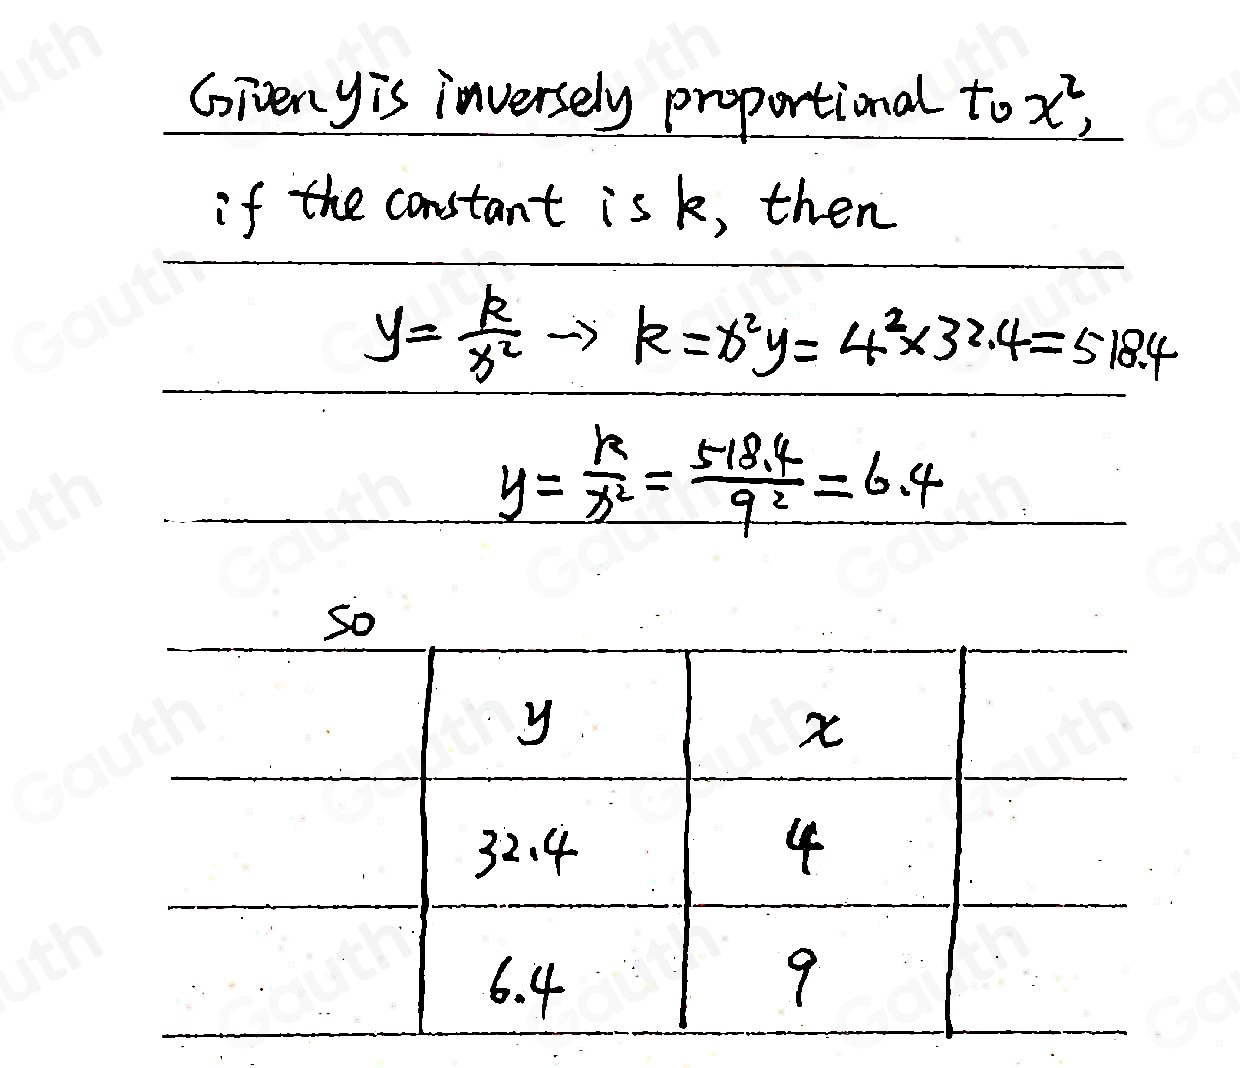 Given y is inversely proportional to x²,
if the constant is k, then
y = k/x² → k = x²y = 4² × 32.4 = 518.4
y = k/x² = 518.4/9² = 6.4
so
y x
32.4 4
6.4 9